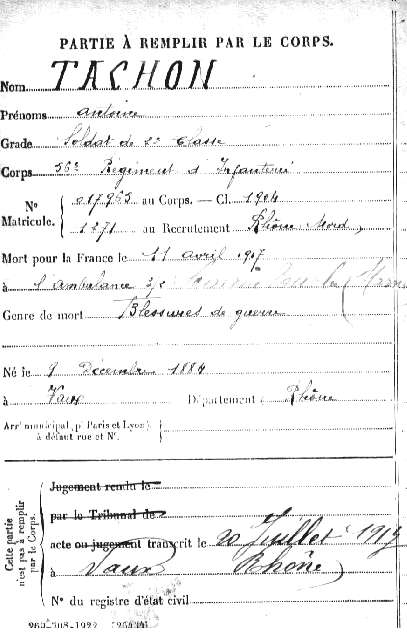 PARTIE À REMPLIR PAR LE CORPS.
Nom TACHON
Prénoms Antoine
Grade Soldat de 2e classe
Corps 56e Régiment d'Infanterie
N° Matricule. 017965 au Corps. — Cl. 1904
1271 au Recrutement Rhône Nord
Mort pour la France le 11 avril
à l'ambulance
Genre de mort Blessures de guerre
Né le 9 Décembre 1884
à Vaux Département Rhône
Arrt municipal (pr Paris et Lyon),
à défaut rue et N°.
Cette partie
n'est pas à remplir
par le Corps.
Jugement rendu le
par le Tribunal de
acte ou jugement transcrit le 20 Juillet
à Vaux Rhône
N° du registre d'état civil